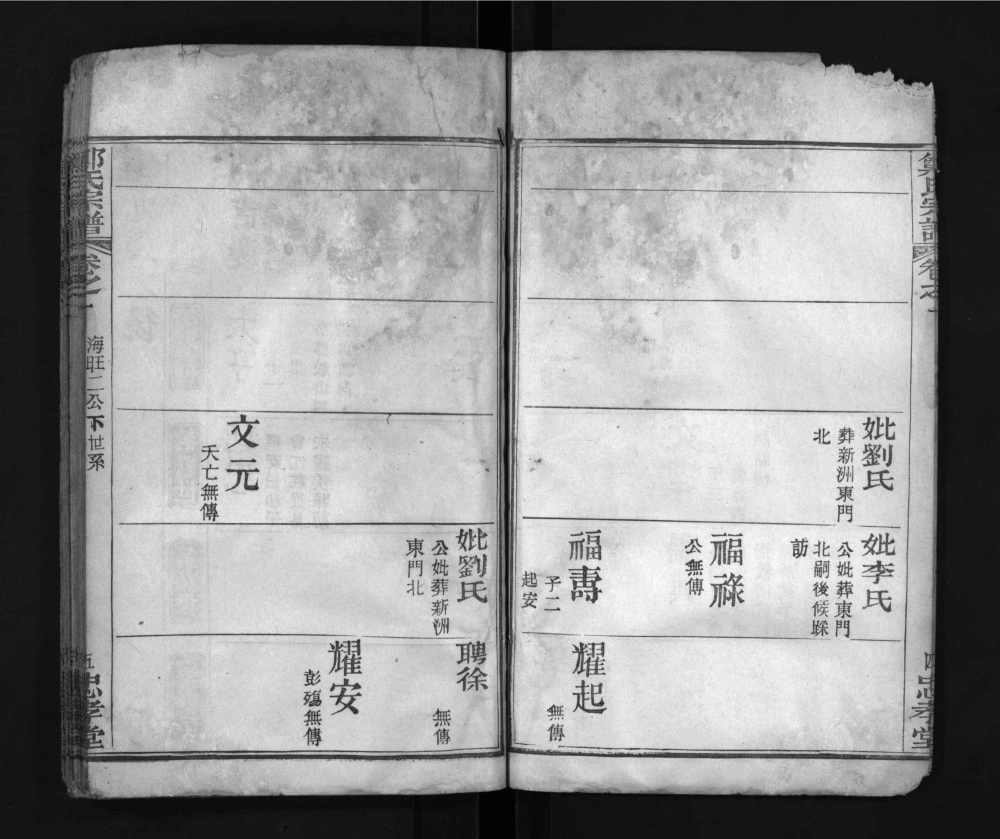 氏宗譜
卷之一
四
忠孝堂
妣劉氏
葬新洲東門
北
妣李氏
公妣葬東門
北嗣後候踩
訪
福祿
公無傳
福壽
子二
起安
耀起
無傳
文元
夭亡無傳
妣劉氏
公妣葬新洲
東門北
聘徐
無傳
耀安
彭殤無傳
氏宗譜
卷之一
海旺二公下世系
五
忠孝堂